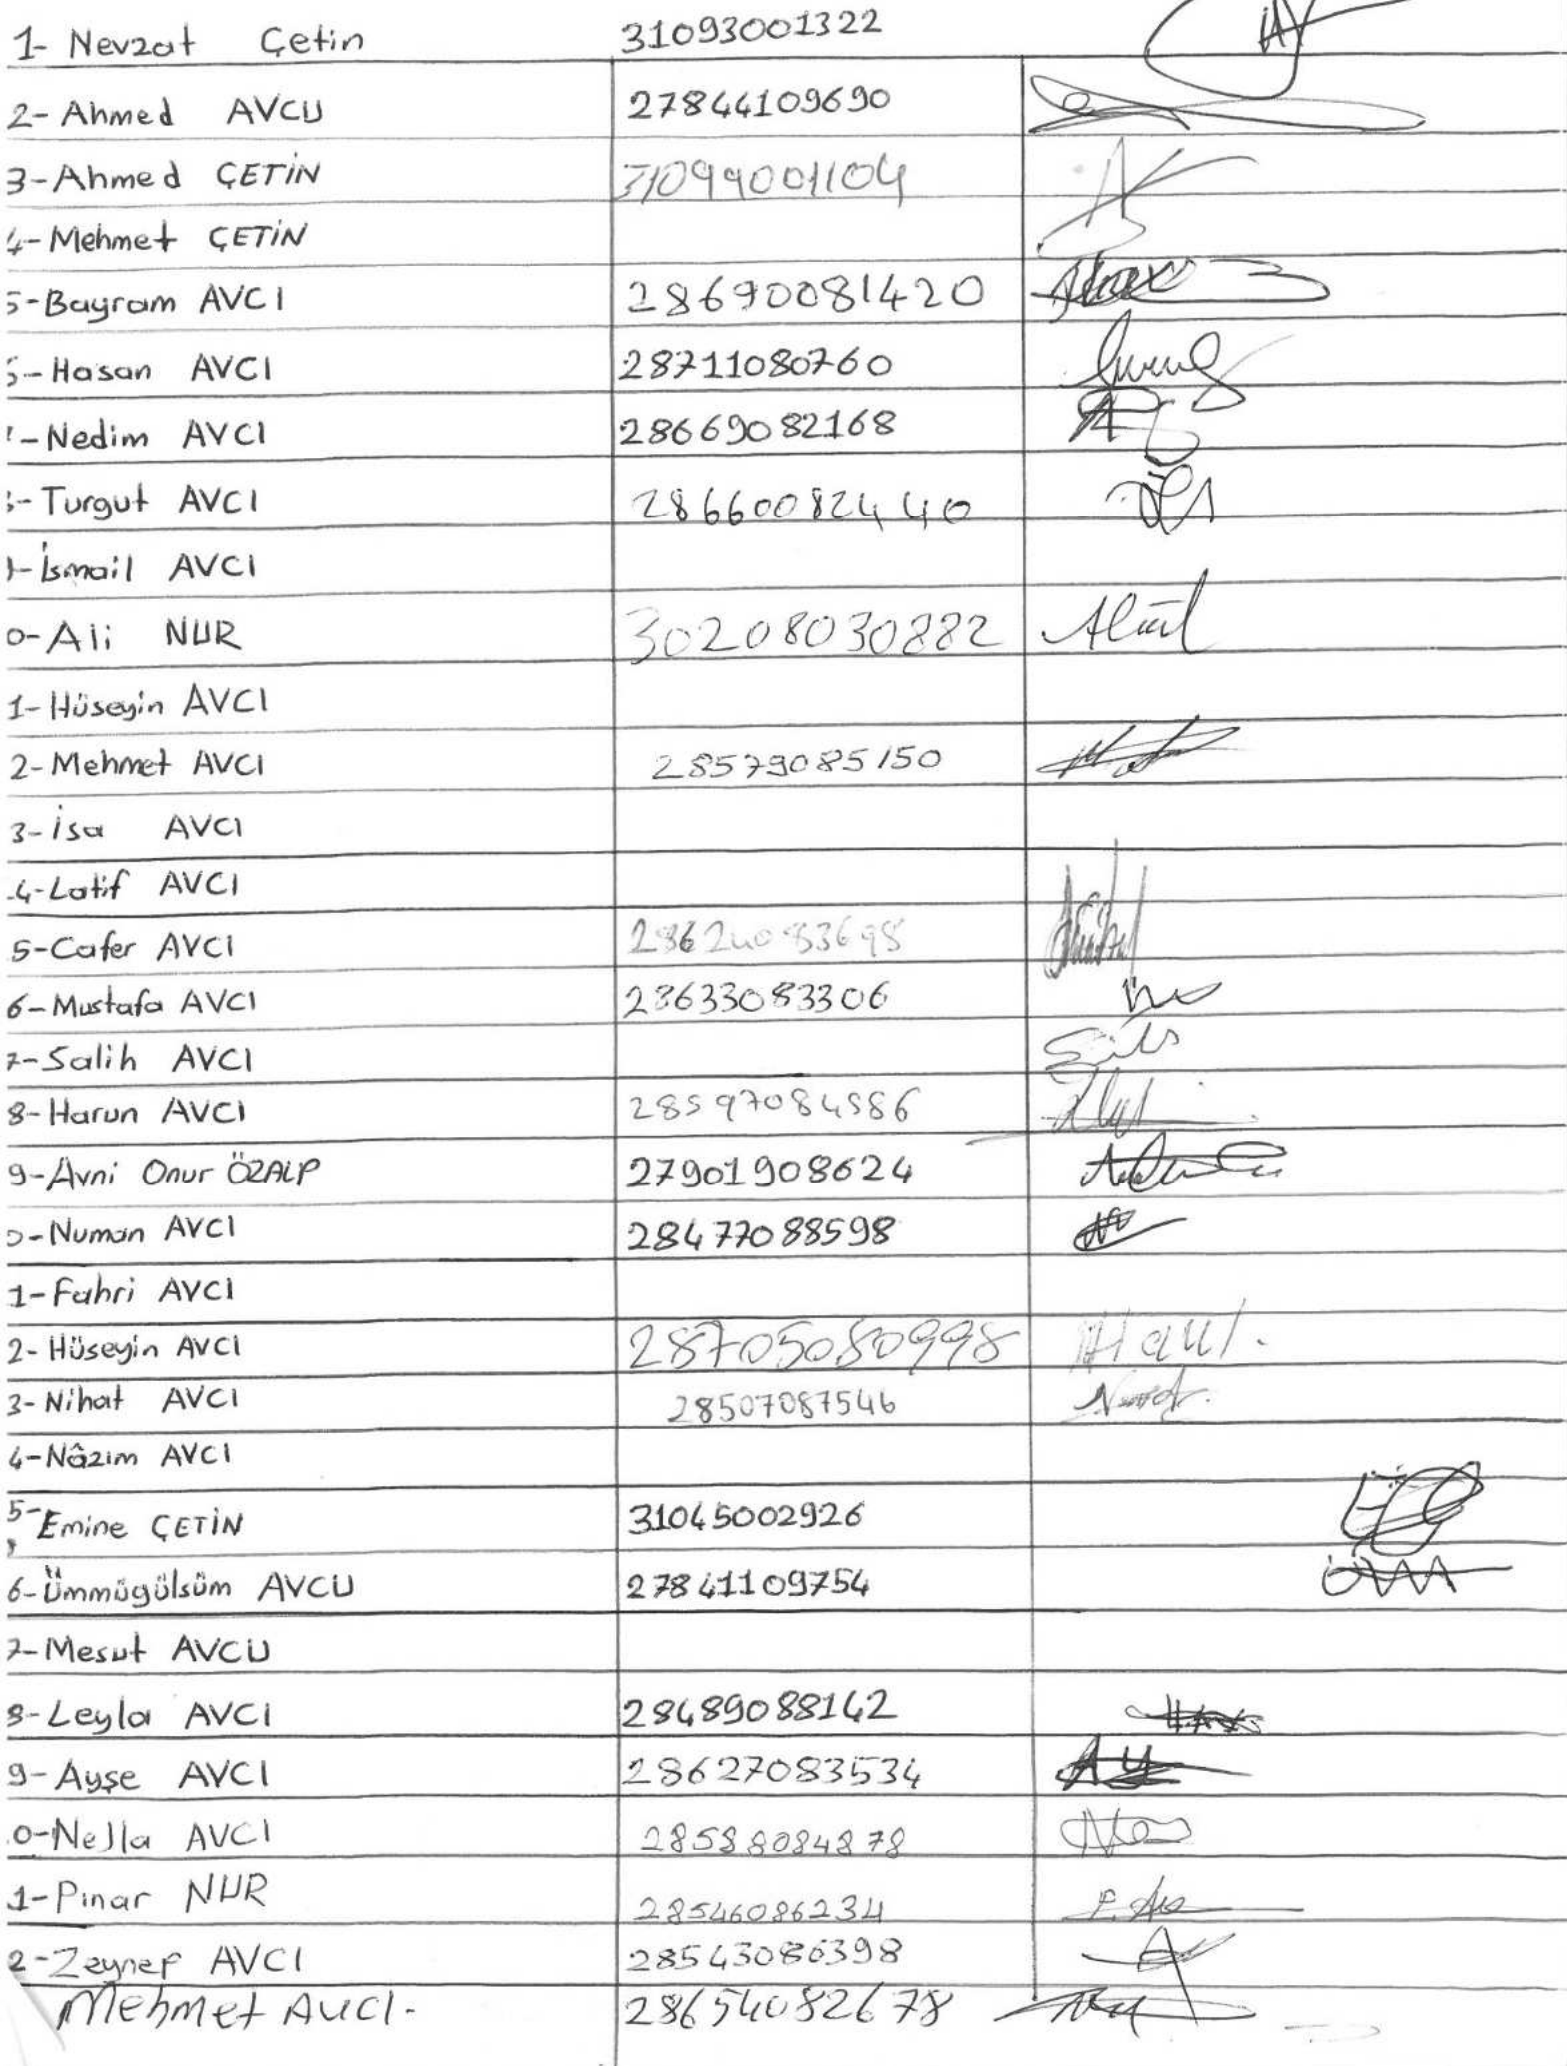 1- Nevzat Çetin 31093001322
2- Ahmed AVCU 27844109690
3- Ahmed ÇETİN 31099001104
4- Mehmet ÇETİN
5- Bayram AVCI 28690081420
- Hasan AVCI 28711080760
- Nedim AVCI 28669082168
- Turgut AVCI 28660082440
- İsmail AVCI
0- Ali NUR 30208030882
1- Hüseyin AVCI
2- Mehmet AVCI 28579085150
3- İsa AVCI
4- Latif AVCI
5- Cafer AVCI 28624083698
6- Mustafa AVCI 28633083306
7- Salih AVCI
8- Harun AVCI 28597084586
9- Avni Onur ÖZALP 27901908624
0- Numan AVCI 28477088598
1- Fahri AVCI
2- Hüseyin AVCI 28705080998
3- Nihat AVCI 28507087546
4- Nâzım AVCI
5- Emine ÇETİN 31045002926
6- Ümmügülsüm AVCU 27841109754
7- Mesut AVCU
8- Leyla AVCI 28489088142
9- Ayşe AVCI 28627083534
0- Nella AVCI 28588084878
1- Pınar NUR 28546086234
2- Zeynep AVCI 28543086398
Mehmet AVCI. 28654082678